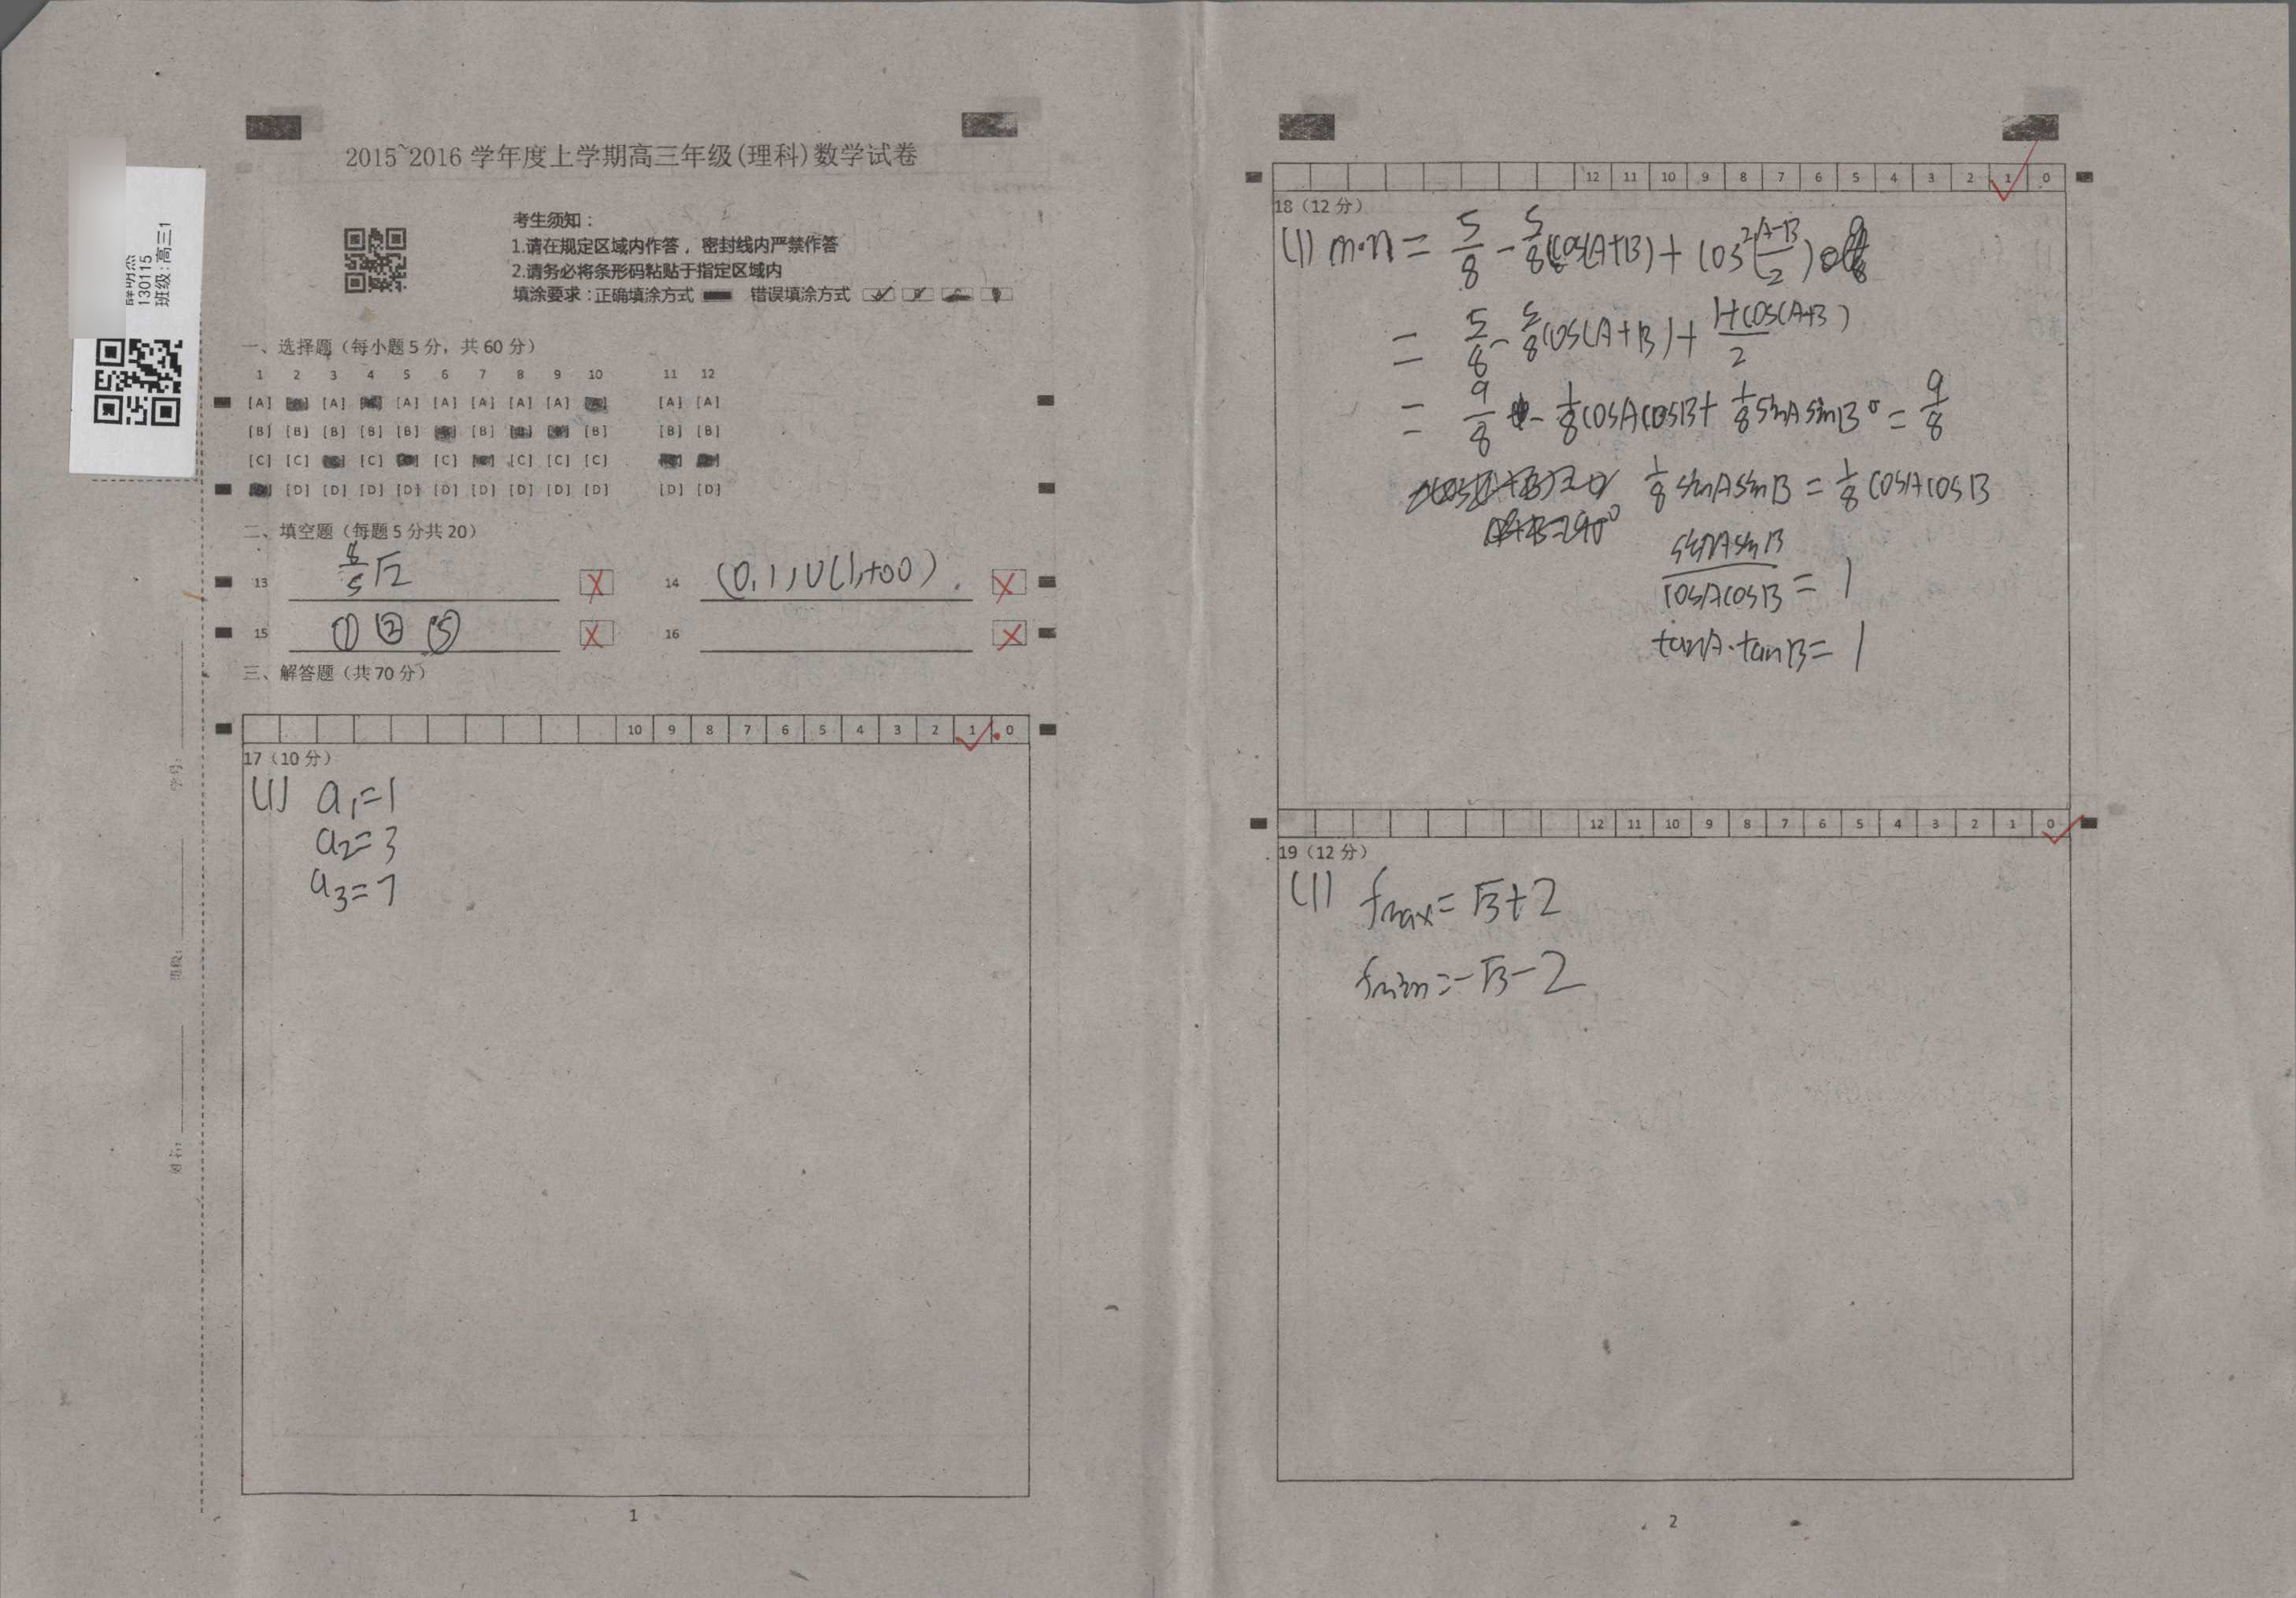 2015~2016 学年度上学期高三年级(理科)数学试卷
130115
班级:高三1
考生须知：
1.请在规定区域内作答，密封线内严禁作答
2.请务必将条形码粘贴于指定区域内
填涂要求：正确填涂方式 错误填涂方式
一、选择题（每小题 5 分，共 60 分）
1 2 3 4 5 6 7 8 9 10 11 12
[A] [A] [A] [A] [A] [A] [A] [A] [A]
[B] [B] [B] [B] [B] [B] [B] [B] [B]
[C] [C] [C] [C] [C] [C] [C]
[D] [D] [D] [D] [D] [D] [D] [D] [D] [D] [D]
二、填空题（每题 5 分共 20）
13 8/5√2 14 (0,1)∪(1,+∞).
15 ①②⑤ 16
三、解答题（共 70 分）
10 9 8 7 6 5 4 3 2 1 0
17（10 分）
(1) a₁=1
a₂=3
a₃=7
学号:
班级:
姓名:
1
12 11 10 9 8 7 6 5 4 3 2 1 0
18（12 分）
(1) m·n = 5/8 - 5/8cos(A+B) + cos²(A-B/2)
= 5/8 - 5/8cos(A+B) + 1+cos(A+B)/2
= 9/8 - 1/8cosAcosB + 1/8sinAsinB = 9/8
1/8 sinAsinB = 1/8 cosAcosB
sinAsinB/cosAcosB = 1
tanA·tanB = 1
12 11 10 9 8 7 6 5 4 3 2 1 0
19（12 分）
(1) fmax=√3+2
fmin=-√3-2
2